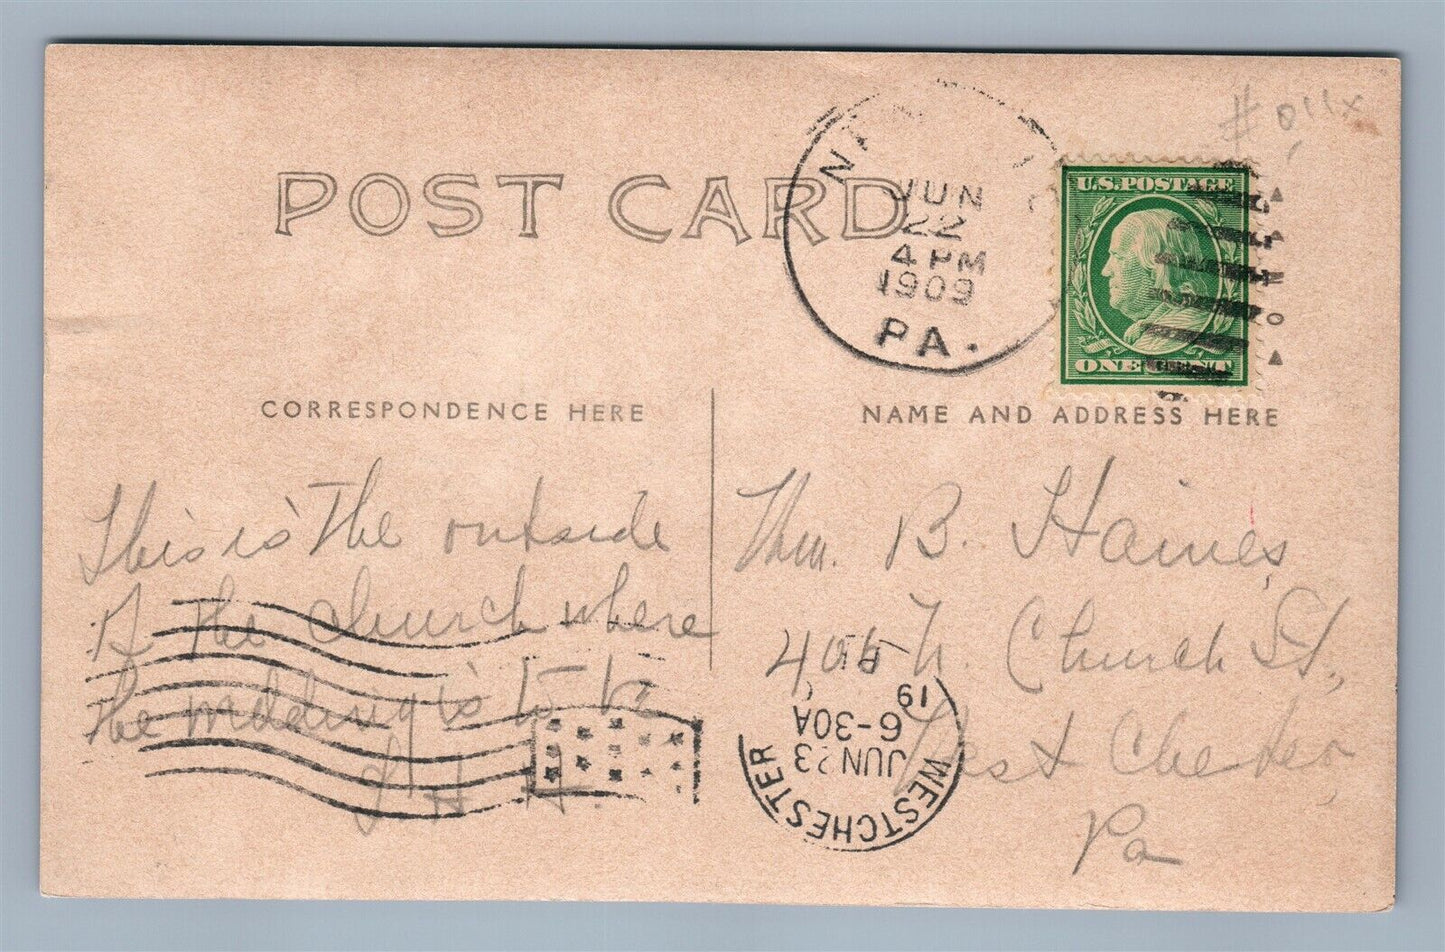 # 011x
POST CARD
JUN
22
4 PM
1909
PA.
U.S. POSTAGE
ONE CENT
CORRESPONDENCE HERE
NAME AND ADDRESS HERE
This is the outside
of the church where
the wedding is to be
H. H.
Wm. B. Haines,
406 N. Church St.,
West Chester,
Pa
WESTCHESTER
JUN 23
6-30A
19
PA